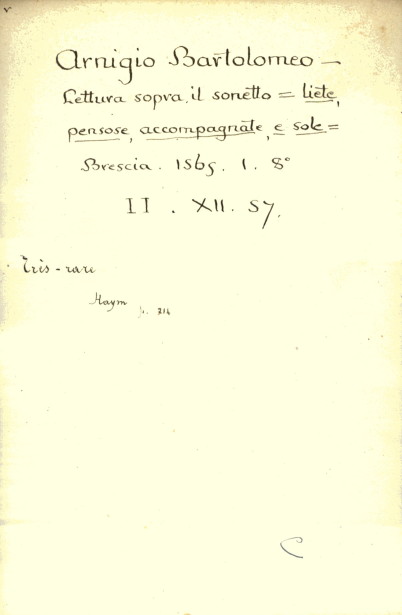 v
Arnigio Bartolomeo —
Lettura sopra il sonetto = liete,
pensose, accompagnate, e sole =
Brescia. 1565. 1. 8°
II. XII. 57.
Très-rare
Haym p. 214
C